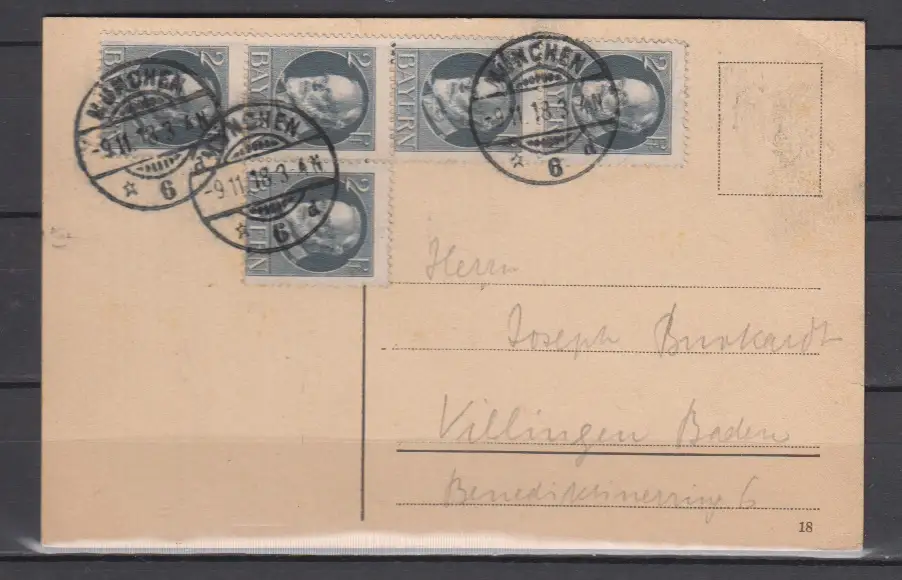 2 Pf BAYERN
2 Pf BAYERN
BAYERN
2 Pf
2 Pf BAYERN
MÜNCHEN
-9.11.18.3-4N
☆ 6 d
MÜNCHEN
-9.11.18.3-4N
☆ 6 d
MÜNCHEN
-9.11.18.3-4N
☆ 6 d
Herrn
Joseph Burkardt
Villingen Baden
Benediktinerring 6
18